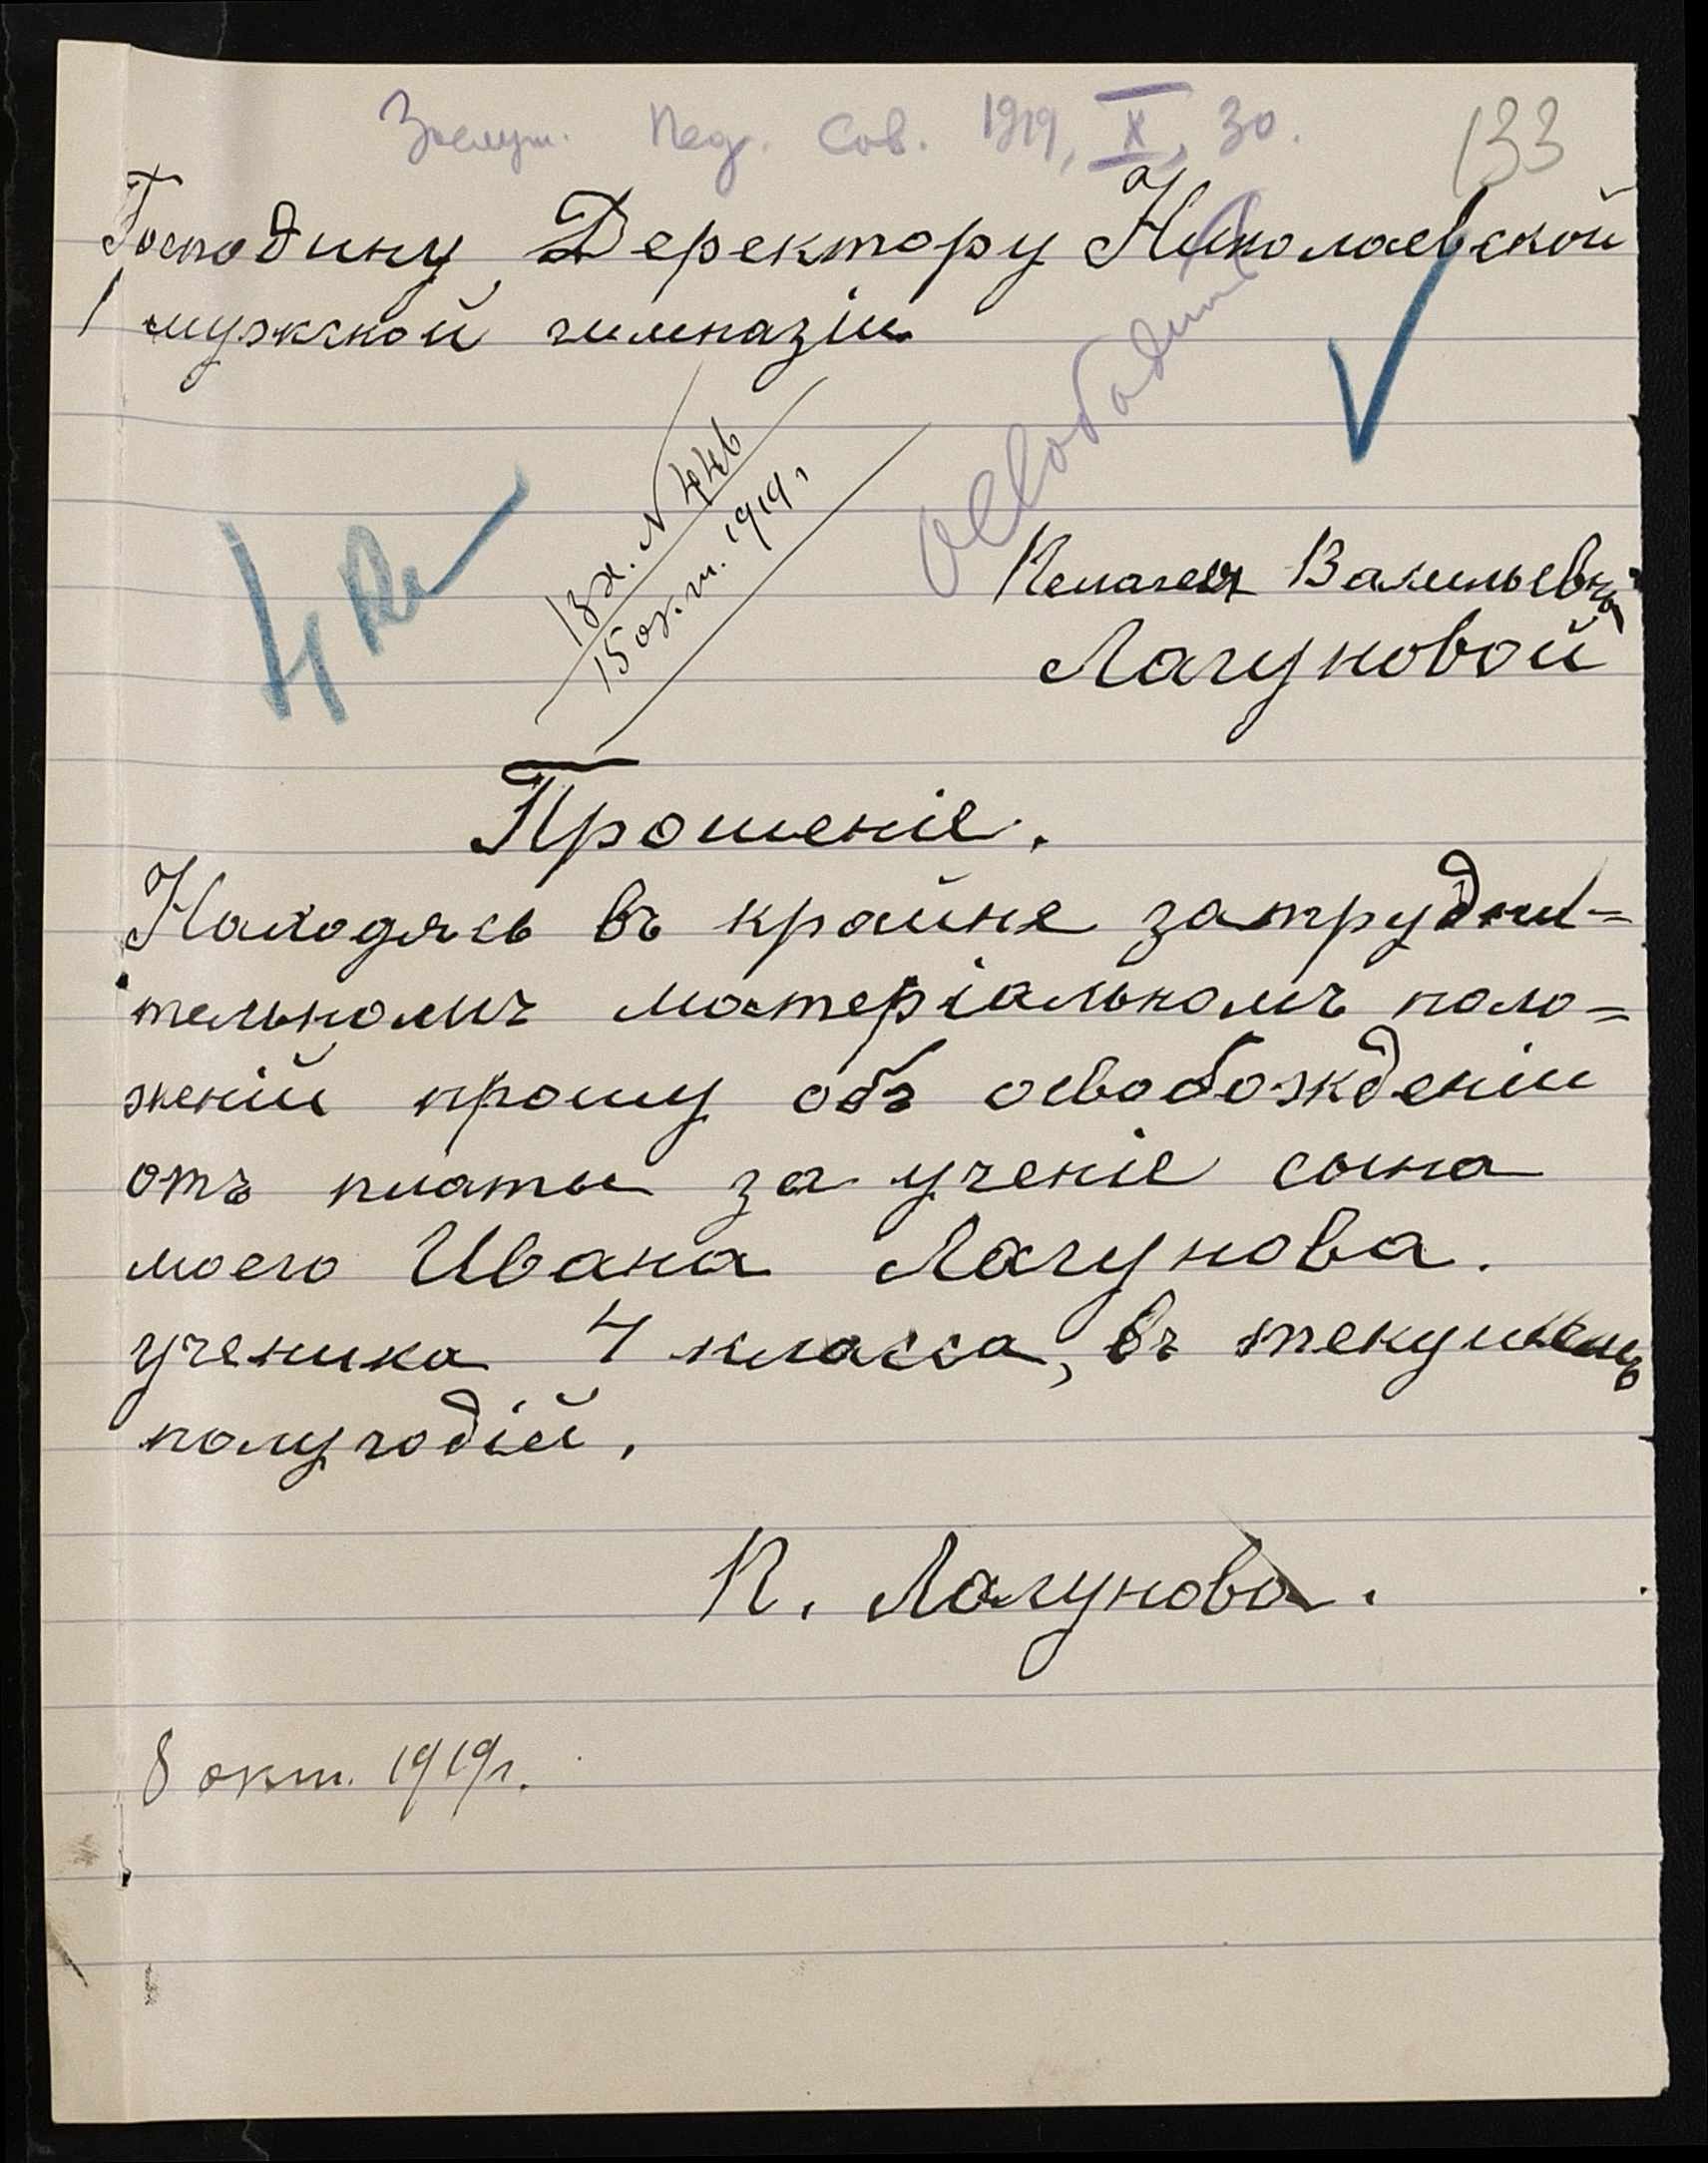 Заслуш. Пед. Сов. 1919, X, 30.
133
Господину Деректору Николаевской
мужской гимназіи
освободить
4 кл
Вх. № 446
15 окт. 1919 г
Пелагеи Васильевны
Лагуновой
Прошеніе.
Находясь въ крайне затрудни=
тельномъ матеріальномъ поло=
женіи прошу объ освобожденіи
отъ платы за ученіе сына
моего Ивана Лагунова.
ученика 4 класса, въ текущемъ
полугодіи.
П. Лагунова.
8 окт. 1919г.